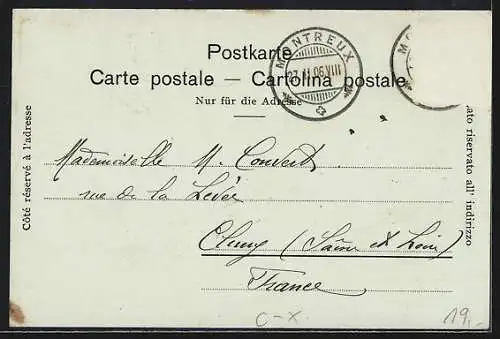 Postkarte
Carte postale — Cartolina postale
Nur für die Adresse
MONTREUX
MO
Côté réservé à l'adresse
ato riservato all' indirizzo
Mademoiselle M. Convert
rue de la Levée
Cluny (Saône et Loire)
France
C-X
19.-